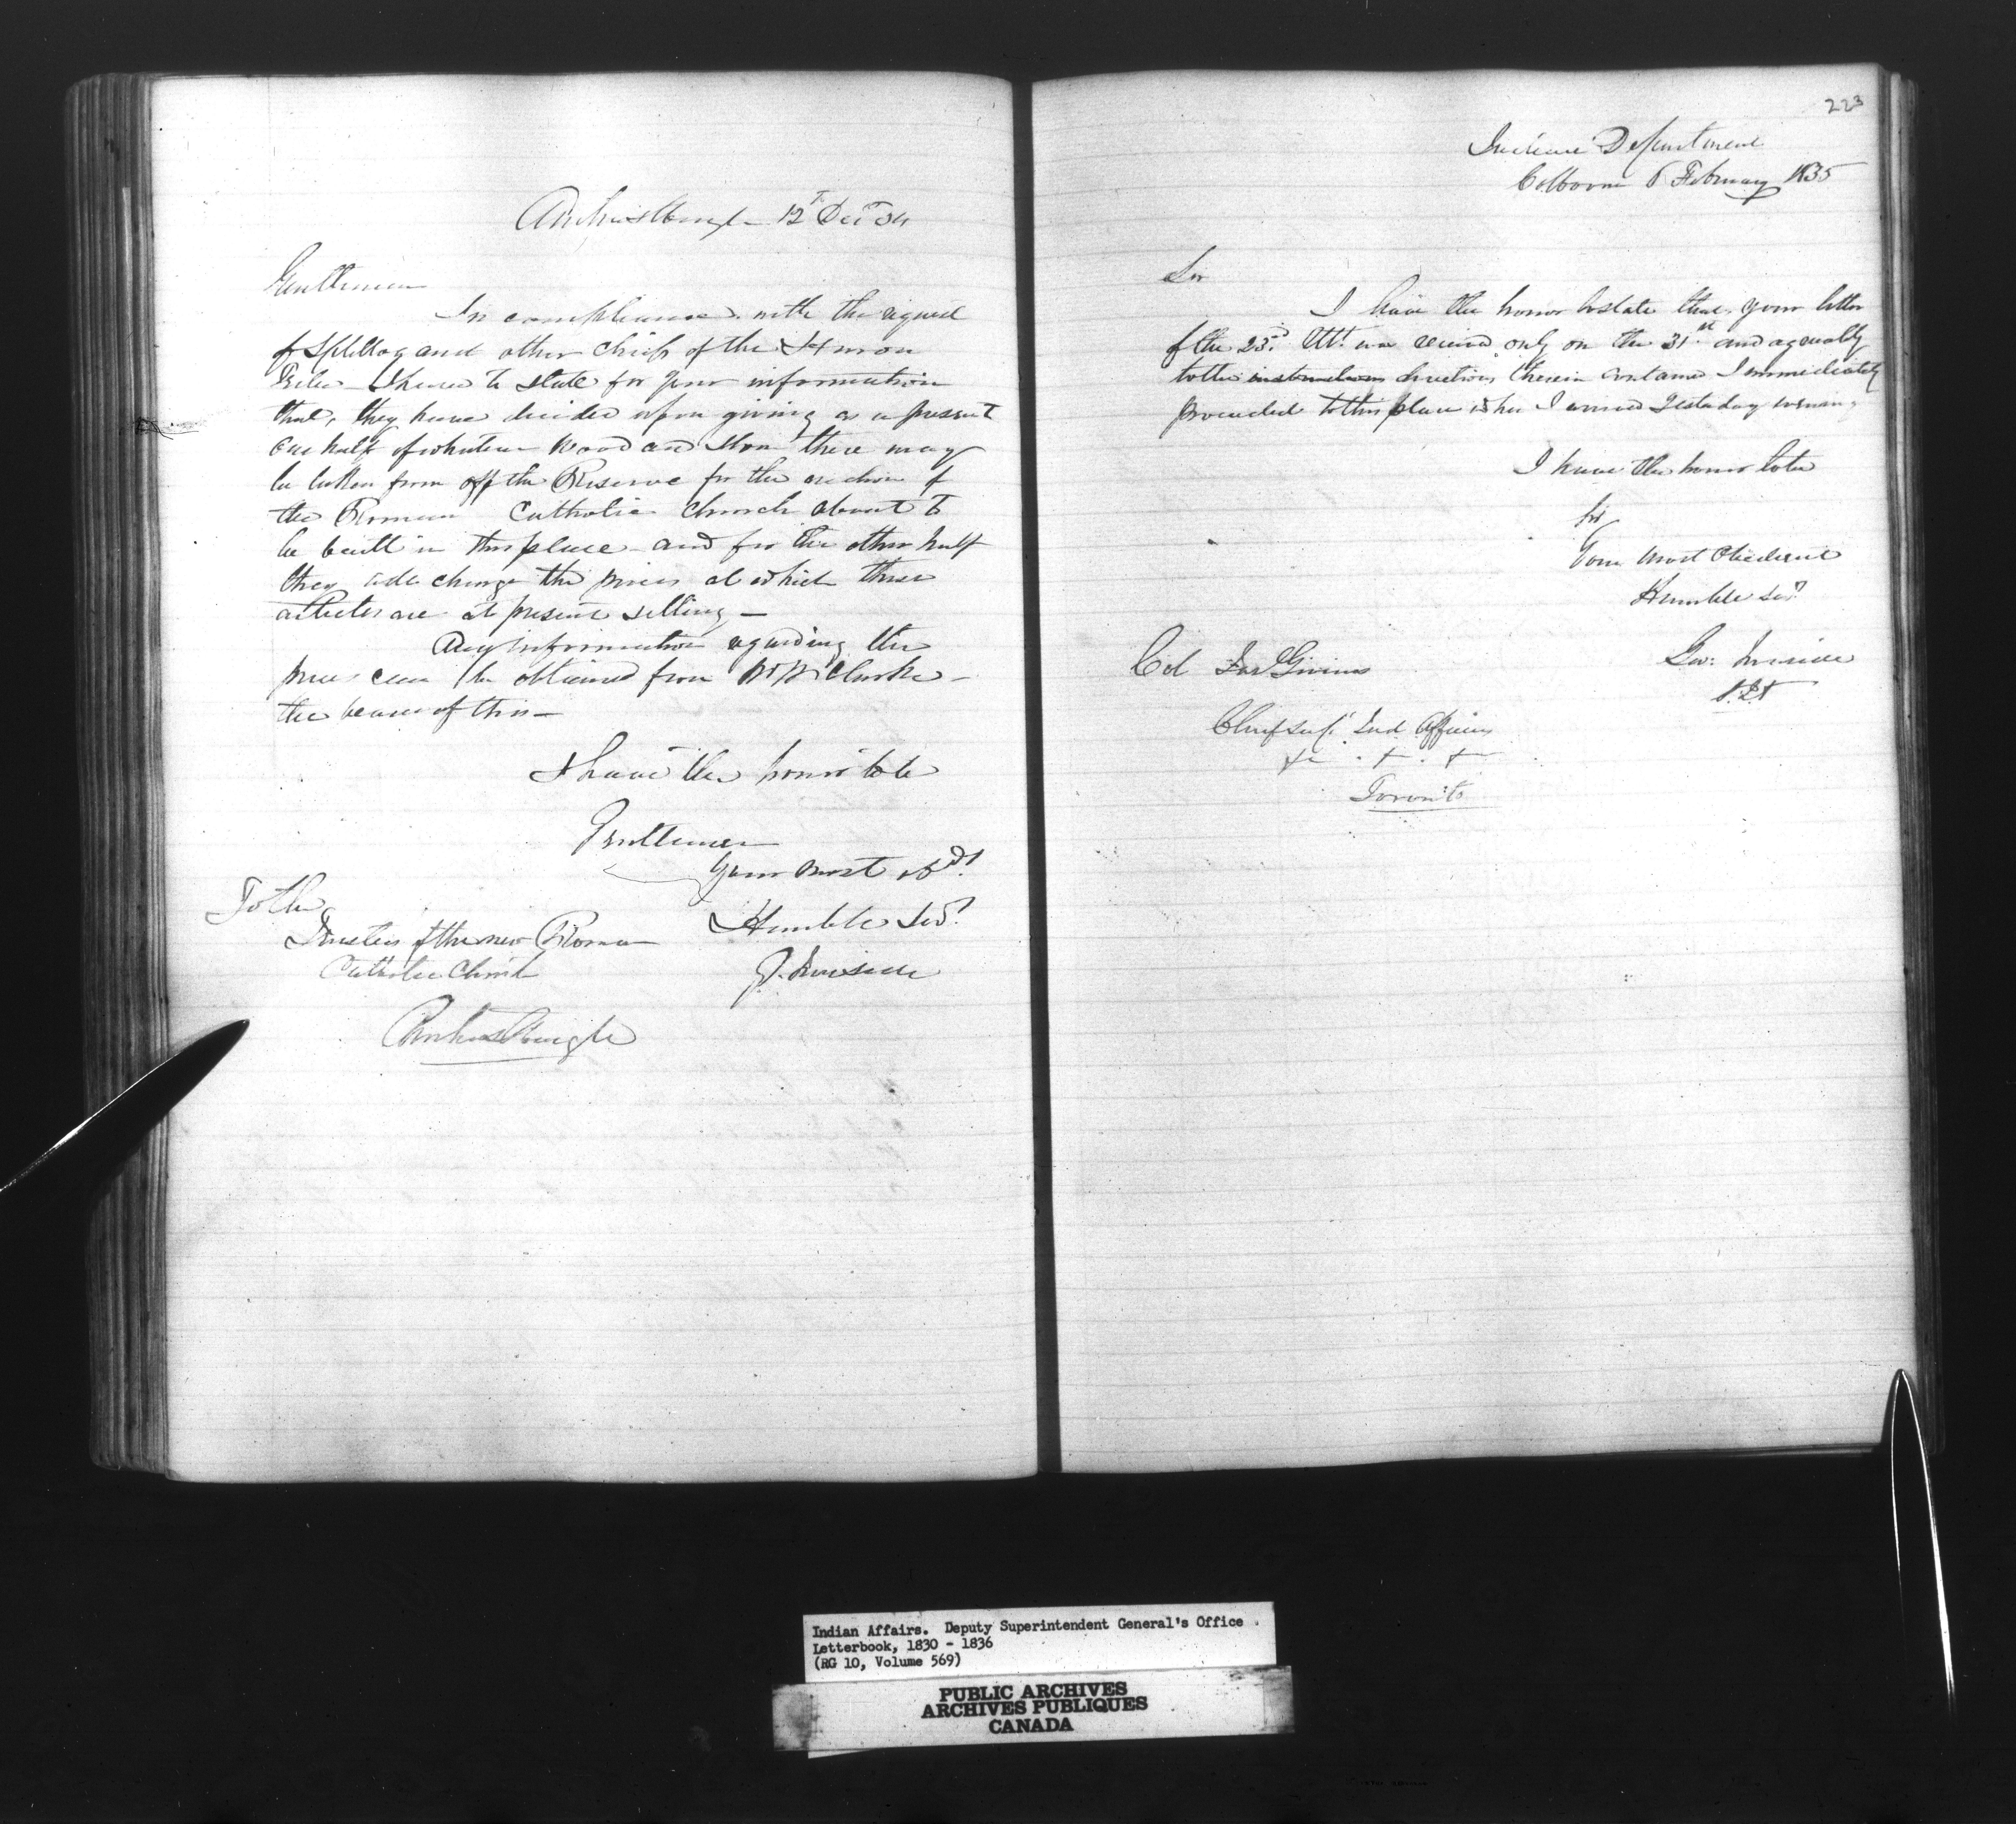 Amherstburgh 12th Decr 34
Gentlemen
In compliance with the request
of Splitlog and other chiefs of the Huron
Tribe I have to state for your information
that, they have decided upon giving as a present
one half of whatever Wood and Stone there may
be taken from off the Reserve for the erection of
the Roman Catholic Church about to
be built in this place and for the other half
they will charge the prices at which those
articles are at present selling —
Any information regarding the
prices can be obtained from Clarke —
the bearer of this —
I have the honor to be
Gentlemen
Your most obdt
Humble Servt
To the
Trustees of the new Roman
Catholic Church
J. Ironside
Amherstburgh
223
Indian Department
Colborne 6 February 1835
Sir
I have the honor to state that your letter
of the 23rd Ult. was received only on the 31st and agreeably
to the instructions directions therein contained I immediately
proceeded to this place where I arrived yesterday evening
I have the honor to be
Sir
Your most Obedient
Humble Servt
Geo: Ironside
S.I.A
Col Jas Givins
Chief Supt Ind Affairs
&c . + . +
Toronto
Indian Affairs. Deputy Superintendent General's Office
Letterbook, 1830 - 1836
(RG 10, Volume 569)
PUBLIC ARCHIVES
ARCHIVES PUBLIQUES
CANADA